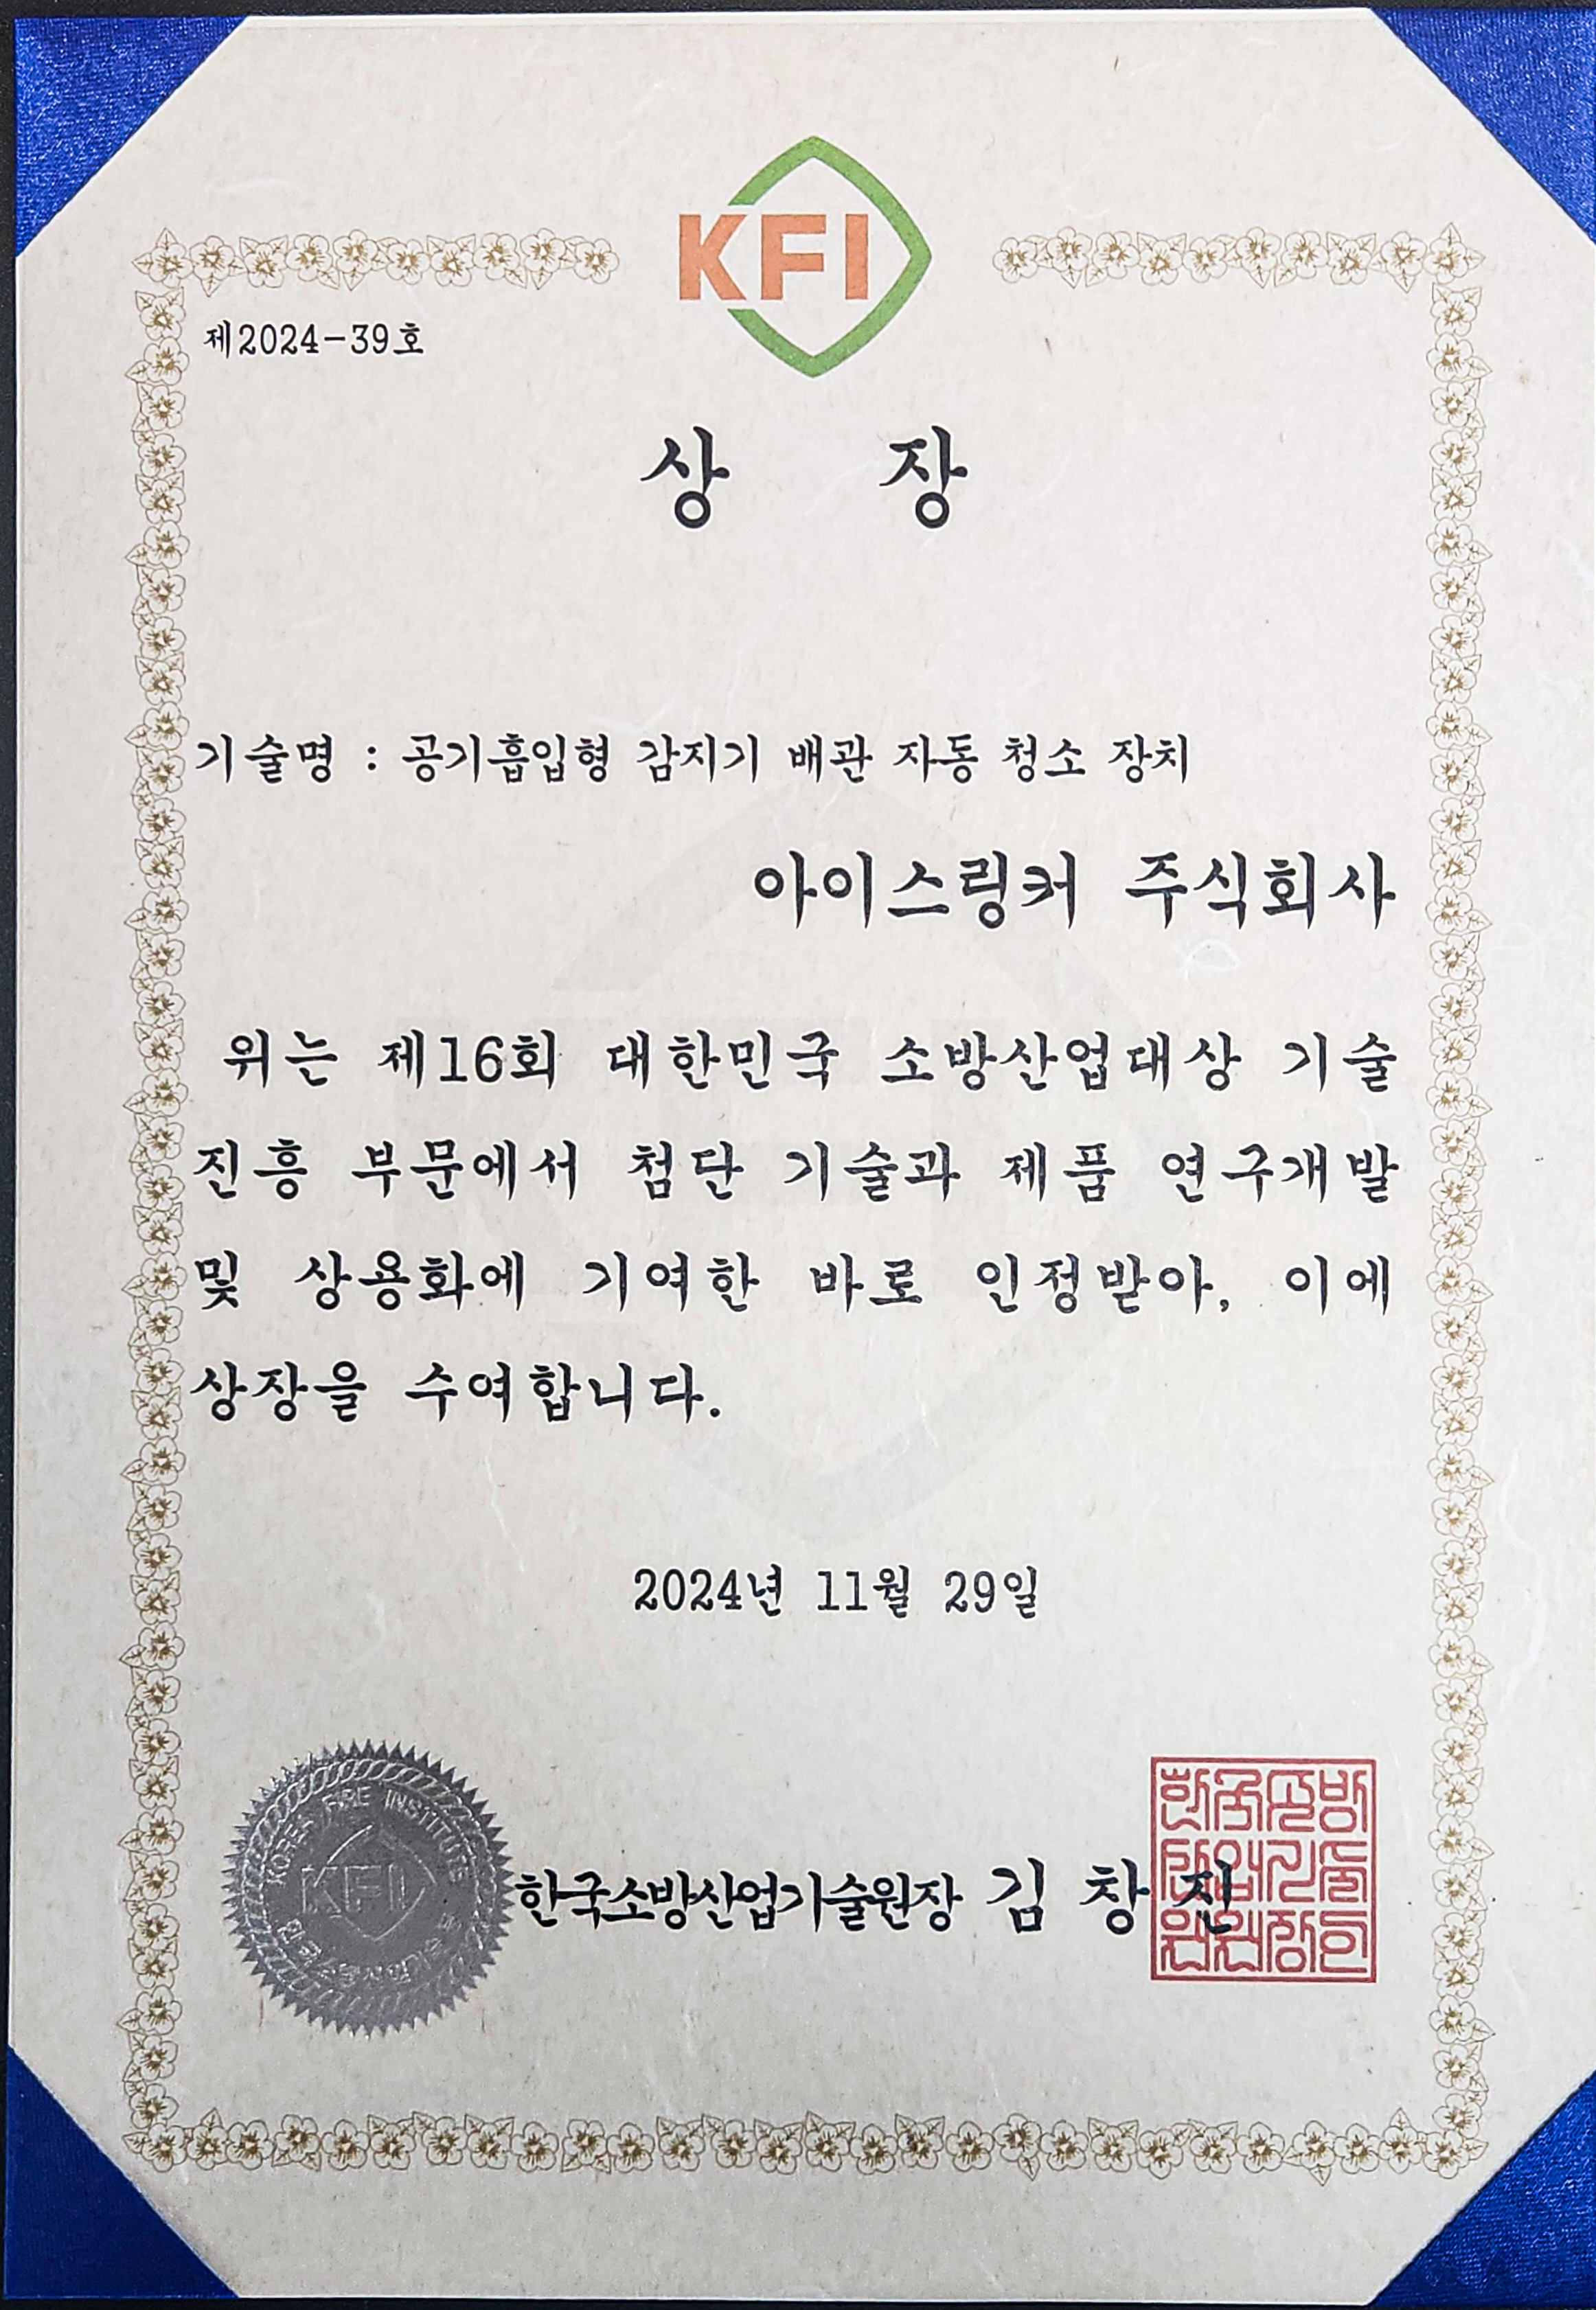 KFI
제2024-39호
상 장
기술명 : 공기흡입형 감지기 배관 자동 청소 장치
아이스링커 주식회사
위는 제16회 대한민국 소방산업대상 기술
진흥 부문에서 첨단 기술과 제품 연구개발
및 상용화에 기여한 바로 인정받아, 이에
상장을 수여합니다.
2024년 11월 29일
KOREA FIRE INSTITUTE
KFI
한국소방산업기술원장 김 창 진
한국소방
산업기술
원원장인